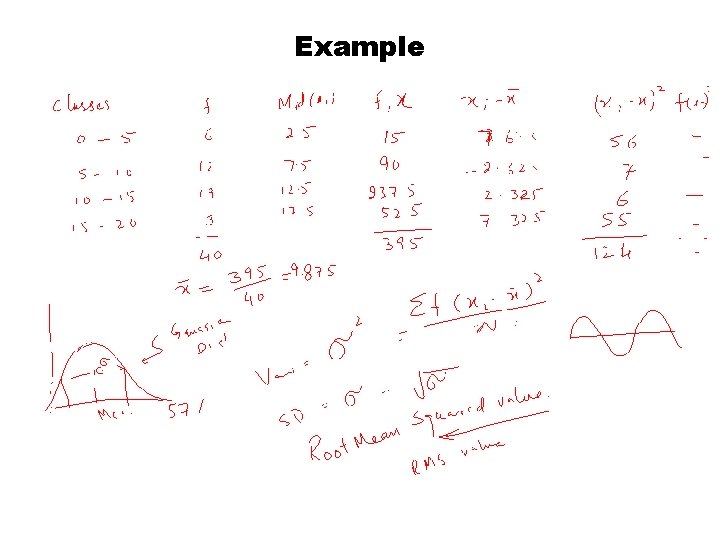 Example
Classes f Mid(x,) f, x x; -x̄ (x, -x)² f(x-)
0 - 5 6 2.5 15 56 -
5 - 10 12 7.5 90 7 -
10 - 15 19 12.5 2.325 6 -
15 - 20 3 17.5 52.5 7.325 55 -
40 395 124
x̄ = 395/40 = 9.875
Gaussian
Var = σ² = Σf(x, - x̄)²/N
SD = σ = √σ
Root Mean Squared value.
RMS value